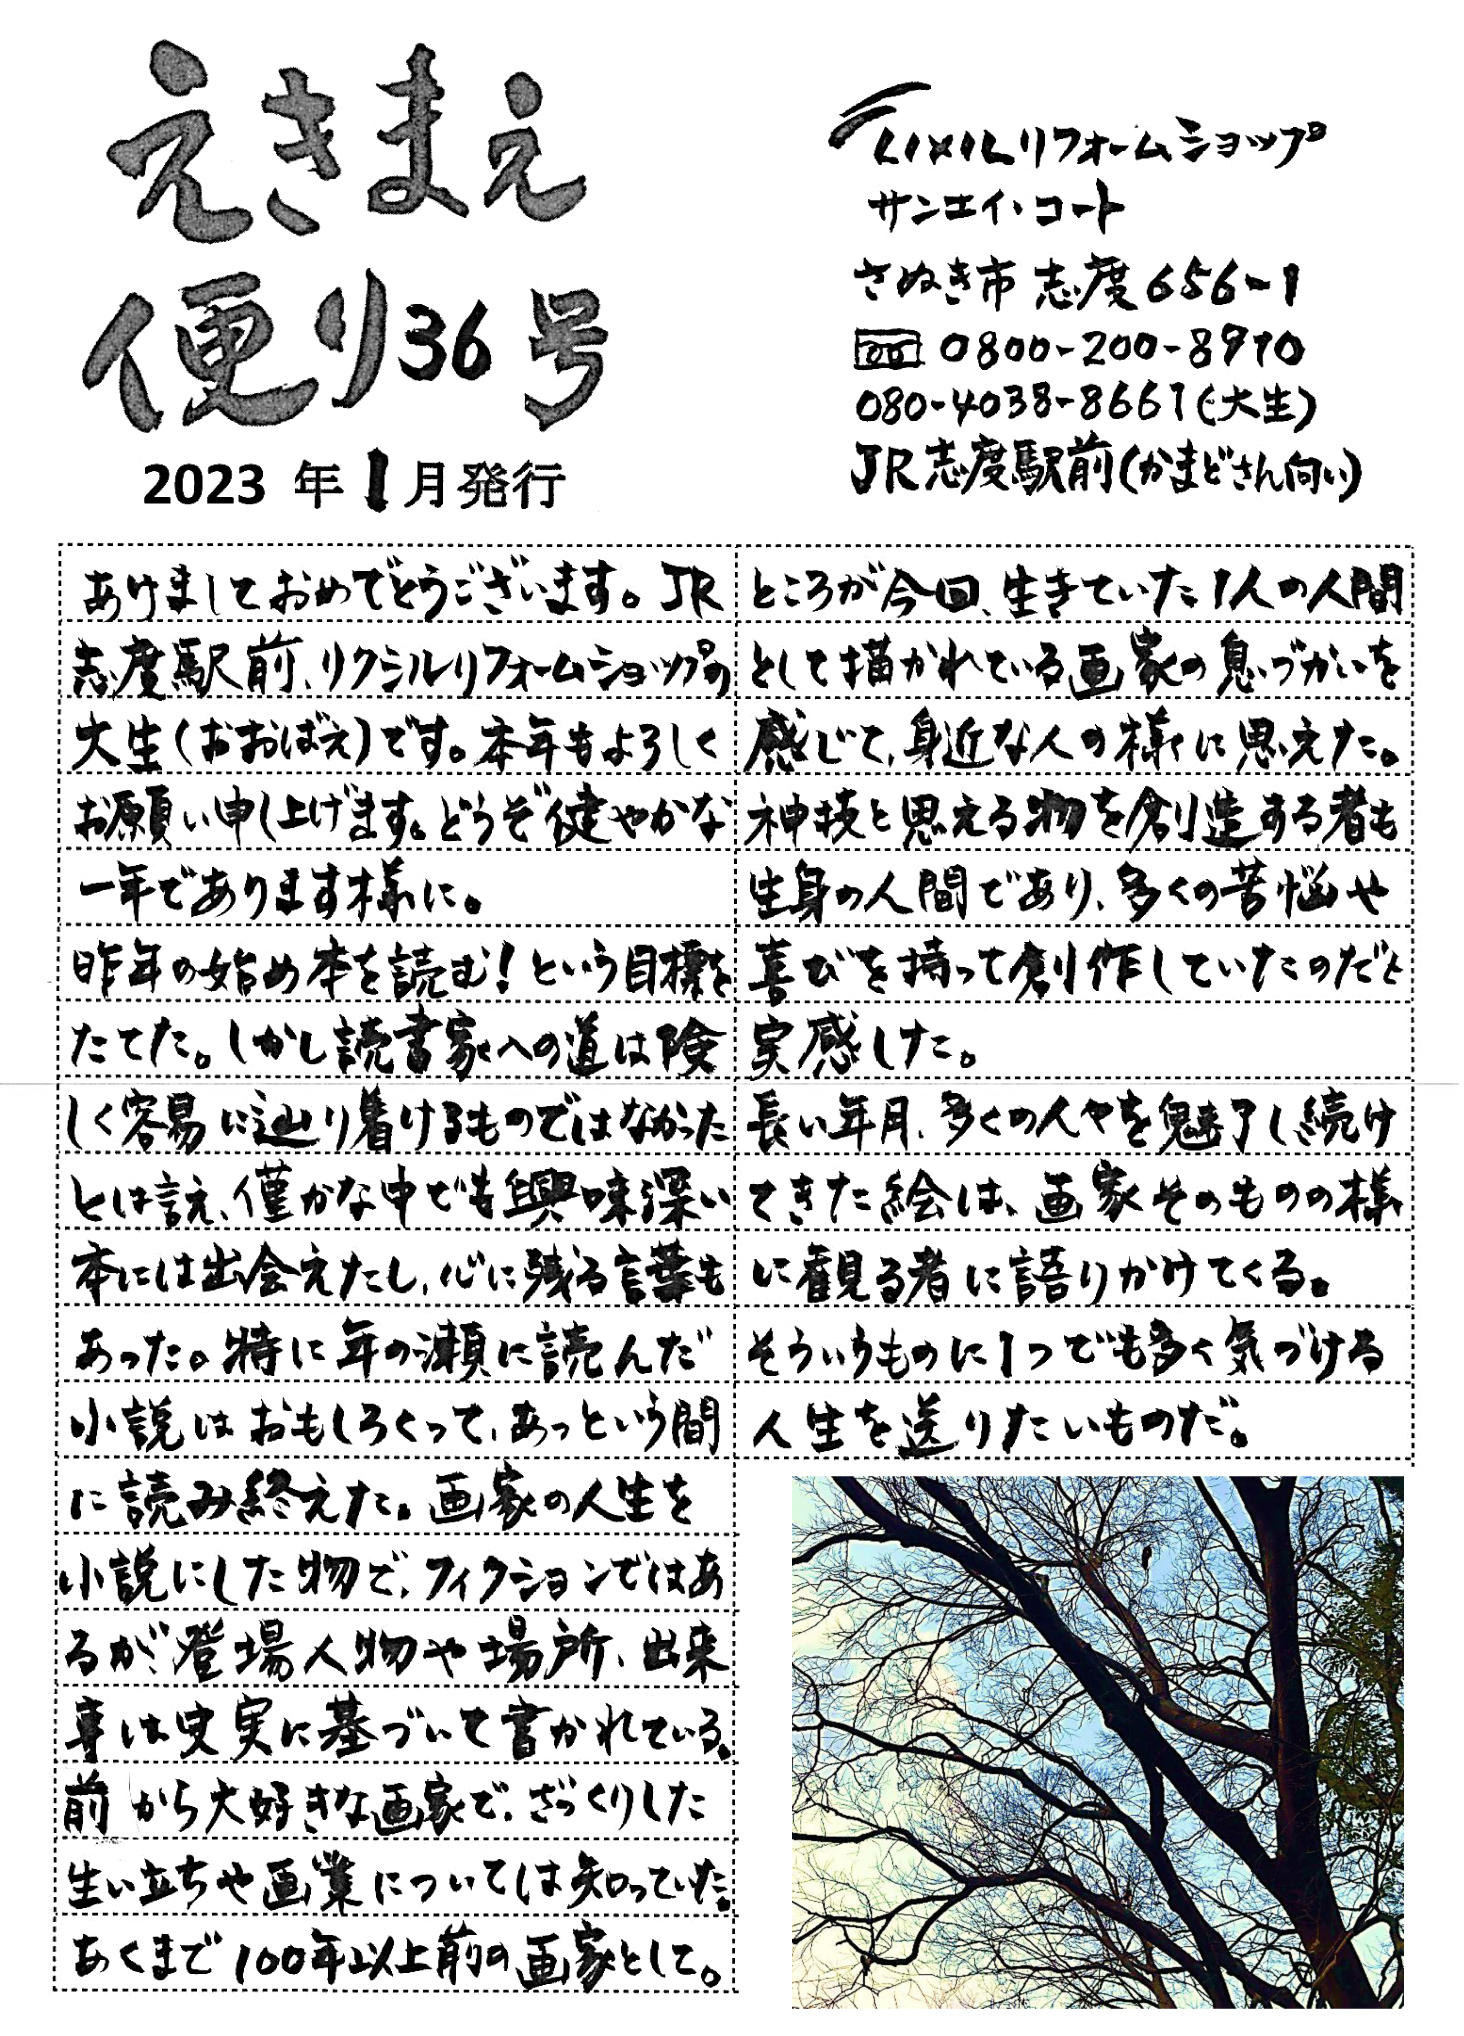 えきまえ
便り36号
2023 年 1月発行
LIXILリフォームショップ
サンエイ・コート
さぬき市 志度656-1
0800-200-8970
080-4038-8661(大生)
JR志度駅前(かまどさん向い)
あけましておめでとうございます。JR
志度駅前、リクシルリフォームショップの
大生(おおばえ)です。本年もよろしく
お願い申し上げます。どうぞ健やかな
一年であります様に。
昨年の始め本を読む!という目標を
たてた。しかし読書家への道は険
しく容易に辿り着けるものではなかった
とは言え、僅かな中でも興味深い
本には出会えたし、心に残る言葉も
あった。特に年の瀬に読んだ
小説はおもしろくって、あっという間
に読み終えた。画家の人生を
小説にした物で、フィクションではあ
るが、登場人物や場所、出来
事は史実に基づいて書かれている。
前から大好きな画家で、ざっくりした
生い立ちや画業については知っていた。
あくまで100年以上前の画家として。
ところが今回、生きていた1人の人間
として描かれている画家の息づかいを
感じて、身近な人の様に思えた。
神技と思える物を創造する者も
生身の人間であり、多くの苦悩や
喜びを持って創作していたのだと
実感した。
長い年月、多くの人々を魅了し続け
てきた絵は、画家そのものの様
に観る者に語りかけてくる。
そういうものに1つでも多く気づける
人生を送りたいものだ。